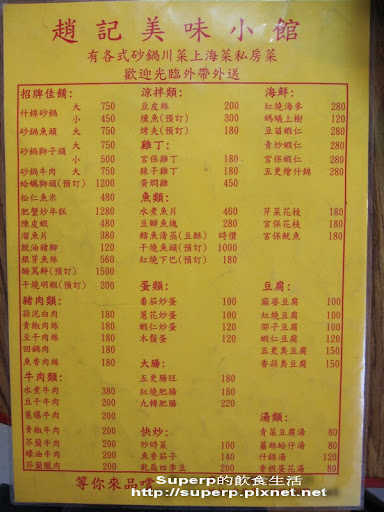 趙記美味小館
有各式砂鍋川菜上海菜私房菜
歡迎光臨外帶外送
招牌佳餚:
什錦砂鍋 大 750
小 450
砂鍋魚頭 大 750
小 450
砂鍋獅子頭 大 750
小 500
砂鍋牛肉 大 750
蛤蠣獅頭(預訂) 1200
松仁魚米 480
肥蟹炒年糕 1280
陳皮蝦 480
溜魚片 380
脫油豬腳 120
銀芽魚絲 560
醃篤鮮(預訂) 1500
干燒明蝦(預訂) 200
豬肉類:
蒜泥白肉 180
青椒肉絲 180
豆干肉絲 180
回鍋肉 180
魚香肉絲 180
牛肉類:
水煮牛肉 380
豆干牛肉 200
蔥爆牛肉 200
青椒牛肉 200
芥蘭牛肉 200
蠔油牛肉 200
芥蘭臘肉 200
涼拌類:
豆皮絲 200
燻魚(預訂) 300
烤夫(預訂) 300
雞丁:
宮保雞丁 180
辣子雞丁 180
黃燜雞 450
魚類:
水煮魚片 460
豆瓣魚塊 280
鱈魚清蒸(豆酥) 時價
干燒魚頭(預訂) 1000
紅燒下巴(預訂) 180
蛋類:
番茄炒蛋 100
蔥花炒蛋 100
蝦仁炒蛋 100
木鬚蛋 120
大腸:
五更腸旺 180
紅燒肥腸 180
九轉肥腸 220
快炒:
炒時菜 100
魚香茄子 140
乾扁四季豆 200
海鮮:
紅燒海參 280
螞蟻上樹 120
豆苗蝦仁 280
青炒蝦仁 280
宮保蝦仁 280
五更燴什錦 280
芹菜花枝 180
宮保花枝 180
宮保魷魚 180
豆腐:
麻婆豆腐 100
紅燒豆腐 100
揶子豆腐 100
蝦仁豆腐 120
五更臭豆腐 150
香蒜臭豆腐 150
湯類:
青菜豆腐湯 80
薑絲蛤仔湯 80
什錦湯 120
香根蛋花湯 80
等你來品嚐
Superp的飲食生活
http://superp.pixnet.net